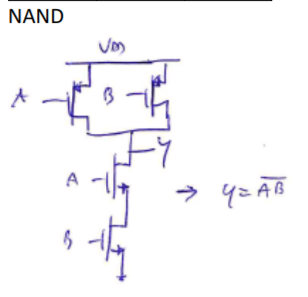 NAND
VDD
A
B
Y
A
→ Y = \overline{AB}
B